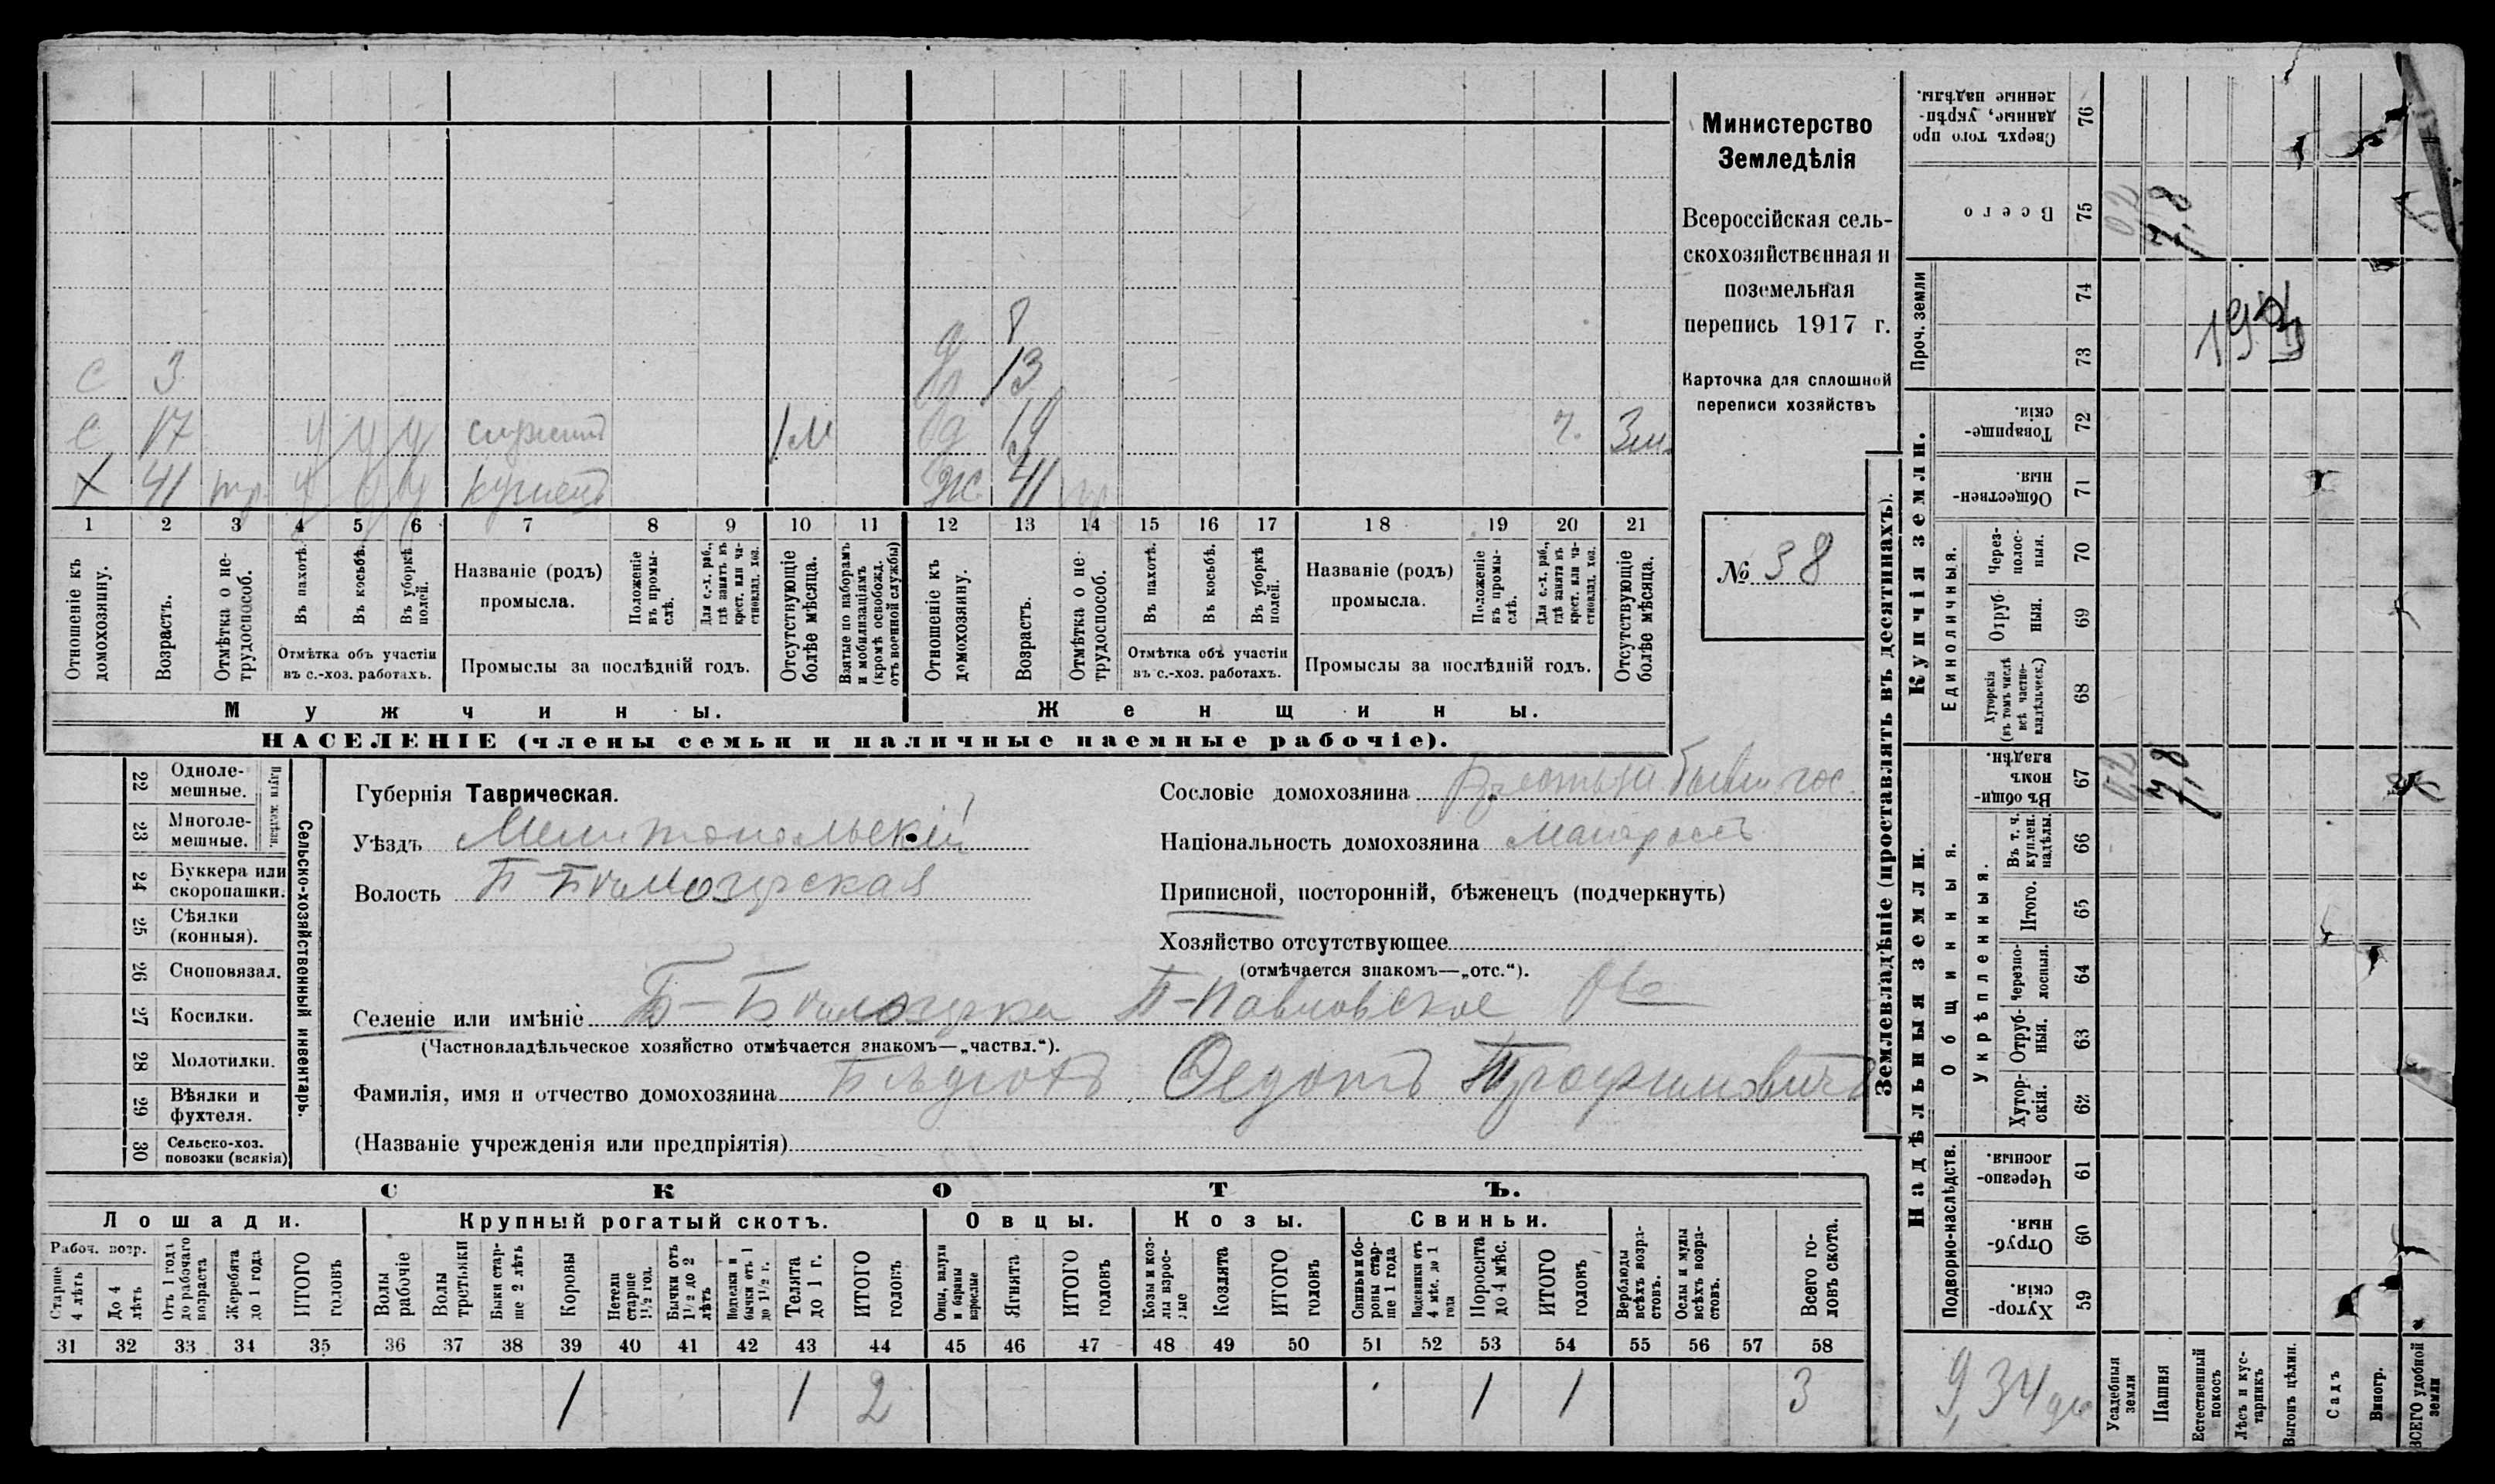 с 3
с 17 ч ч ч служит 1 м
х 41 тр. ч ч ч кузнецъ
д 8
д 13
д 19 г. Зм.
ж 41 тр
1 2 3 4 5 6 7 8 9 10 11 12 13 14 15 16 17 18 19 20 21
Отношеніе къ домохозяину.
Возрастъ.
Отмѣтка о не-трудоспособ.
Въ пахотѣ.
Въ косьбѣ.
Въ уборкѣ полей.
Отмѣтка объ участіи
въ с.-хоз. работахъ.
Названіе (родъ)
промысла.
Положеніе въ промы-слѣ.
Для с.-х. раб., гдѣ занятъ въ крест. или ча-стновлад. хоз.
Промыслы за послѣдній годъ.
Отсутствующіе болѣе мѣсяца.
Взятые по наборамъ и мобилизаціямъ (кромѣ освобожд. отъ военной службы)
Отношеніе къ домохозяину.
Возрастъ.
Отмѣтка о не-трудоспособ.
Въ пахотѣ.
Въ косьбѣ.
Въ уборкѣ полей.
Отмѣтка объ участіи
въ с.-хоз. работахъ.
Названіе (родъ)
промысла.
Положеніе въ промы-слѣ.
Для с.-х. раб., гдѣ занята въ крест. или ча-стновлад. хоз.
Промыслы за послѣдній годъ.
Отсутствующіе болѣе мѣсяца.
Мужчины.
Женщины.
НАСЕЛЕНІЕ (члены семьи и наличные наемные рабочіе).
Министерство
Земледѣлія
Всероссійская сель-
скохозяйственная и
поземельная
перепись 1917 г.
Карточка для сплошной
переписи хозяйствъ
№ 38
22 Одноле-мешные.
23 Многоле-мешные.
Плуги желѣзн.
24 Буккера или скоропашки.
25 Сѣялки (конныя).
26 Сноповязал.
27 Косилки.
28 Молотилки.
29 Вѣялки и фухтеля.
30 Сельско-хоз. повозки (всякія)
Сельско-хозяйственный инвентарь.
Губернія Таврическая.
Уѣздъ Мелитопольскій
Волость Б-Бѣлозерская
Сословіе домохозяина
Національность домохозяина малоросъ
Приписной, посторонній, бѣженецъ (подчеркнуть)
Хозяйство отсутствующее
(отмѣчается знакомъ—„отс.“).
Селеніе или имѣніе Б-Бѣлозерка П-Павловское
(Частновладѣльческое хозяйство отмѣчается знакомъ—„частвл.“).
Фамилія, имя и отчество домохозяина Федотъ Трофимовичъ
(Названіе учрежденія или предпріятія)
СКОТЪ.
Лошади.
Крупный рогатый скотъ.
Овцы.
Козы.
Свиньи.
Рабоч. возр.
Старше 4 лѣтъ
До 4 лѣтъ
Отъ 1 года до рабочаго возраста
Жеребята до 1 года
ИТОГО головъ
Волы рабочіе
Волы третьяки
Быки стар-ше 2 лѣтъ
Коровы
Нетели старше 1½ год.
Бычки отъ 1½ до 2 лѣтъ
Подтелки и бычки отъ 1 до 1½ г.
Телята до 1 г.
ИТОГО головъ
Овцы, валухи и бараны взрослые
Ягнята
ИТОГО головъ
Козы и коз-лы взрос-лые
Козлята
ИТОГО головъ
Свиньи и бо-ровы стар-ше 1 года
Подсвинки отъ 4 мѣс. до 1 года
Поросята до 4 мѣс.
ИТОГО головъ
Верблюды всѣхъ возра-стовъ.
Ослы и мулы всѣхъ возра-стовъ.
Всего го-ловъ скота.
31 32 33 34 35 36 37 38 39 40 41 42 43 44 45 46 47 48 49 50 51 52 53 54 55 56 57 58
1 1 2 1 1 3
Землевладѣніе (проставлять въ десятинахъ).
Купчія земли.
Надѣльныя земли.
Сверхъ того про данные, укрѣп-ленные надѣлы. 76
Всего 75
Проч. земли 74 73
Товарище-скія. 72
Обществен-ныя. 71
Единоличныя.
Через-полос-ныя. 70
Отруб-ныя. 69
Хуторскія (въ томъ числѣ всѣ частно-владѣльческ.) 68
Въ общи-номъ владѣн. 67
Общинныя.
Укрѣпленныя.
Въ т. ч. куплен. надѣлы. 66
Итого. 65
Черезпо-лосныя. 64
Отруб-ныя. 63
Хутор-скія. 62
Подворно-наслѣдств.
Черезпо-лосныя. 61
Отруб-ныя. 60
Хутор-скія. 59
02 7,8
02 7,8
9,34
Усадебныя земли
Пашня
Естественный покосъ
Лѣсъ и кус-тарникъ
Выгонъ цѣлин.
Садъ
Виногр.
ВСЕГО удобной земли